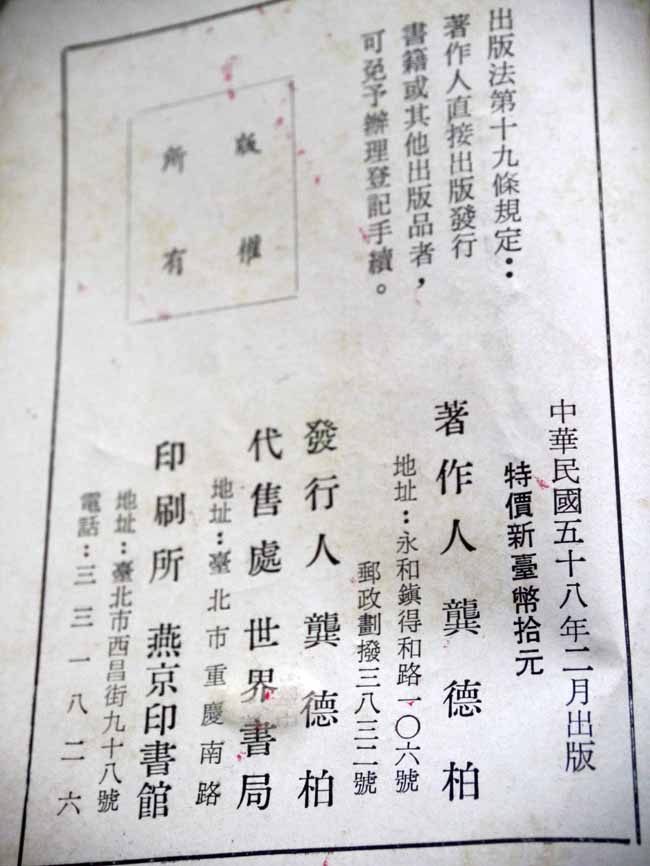 出版法第十九條規定：
著作人直接出版發行
書籍或其他出版品者，
可免予辦理登記手續。
版權
所有
中華民國五十八年二月出版
特價新臺幣拾元
著作人 龔德柏
地址：永和鎮得和路一〇六號
郵政劃撥三八三二號
發行人 龔德柏
代售處 世界書局
地址：臺北市重慶南路
印刷所 燕京印書館
地址：臺北市西昌街九十八號
電話：三三一八二六